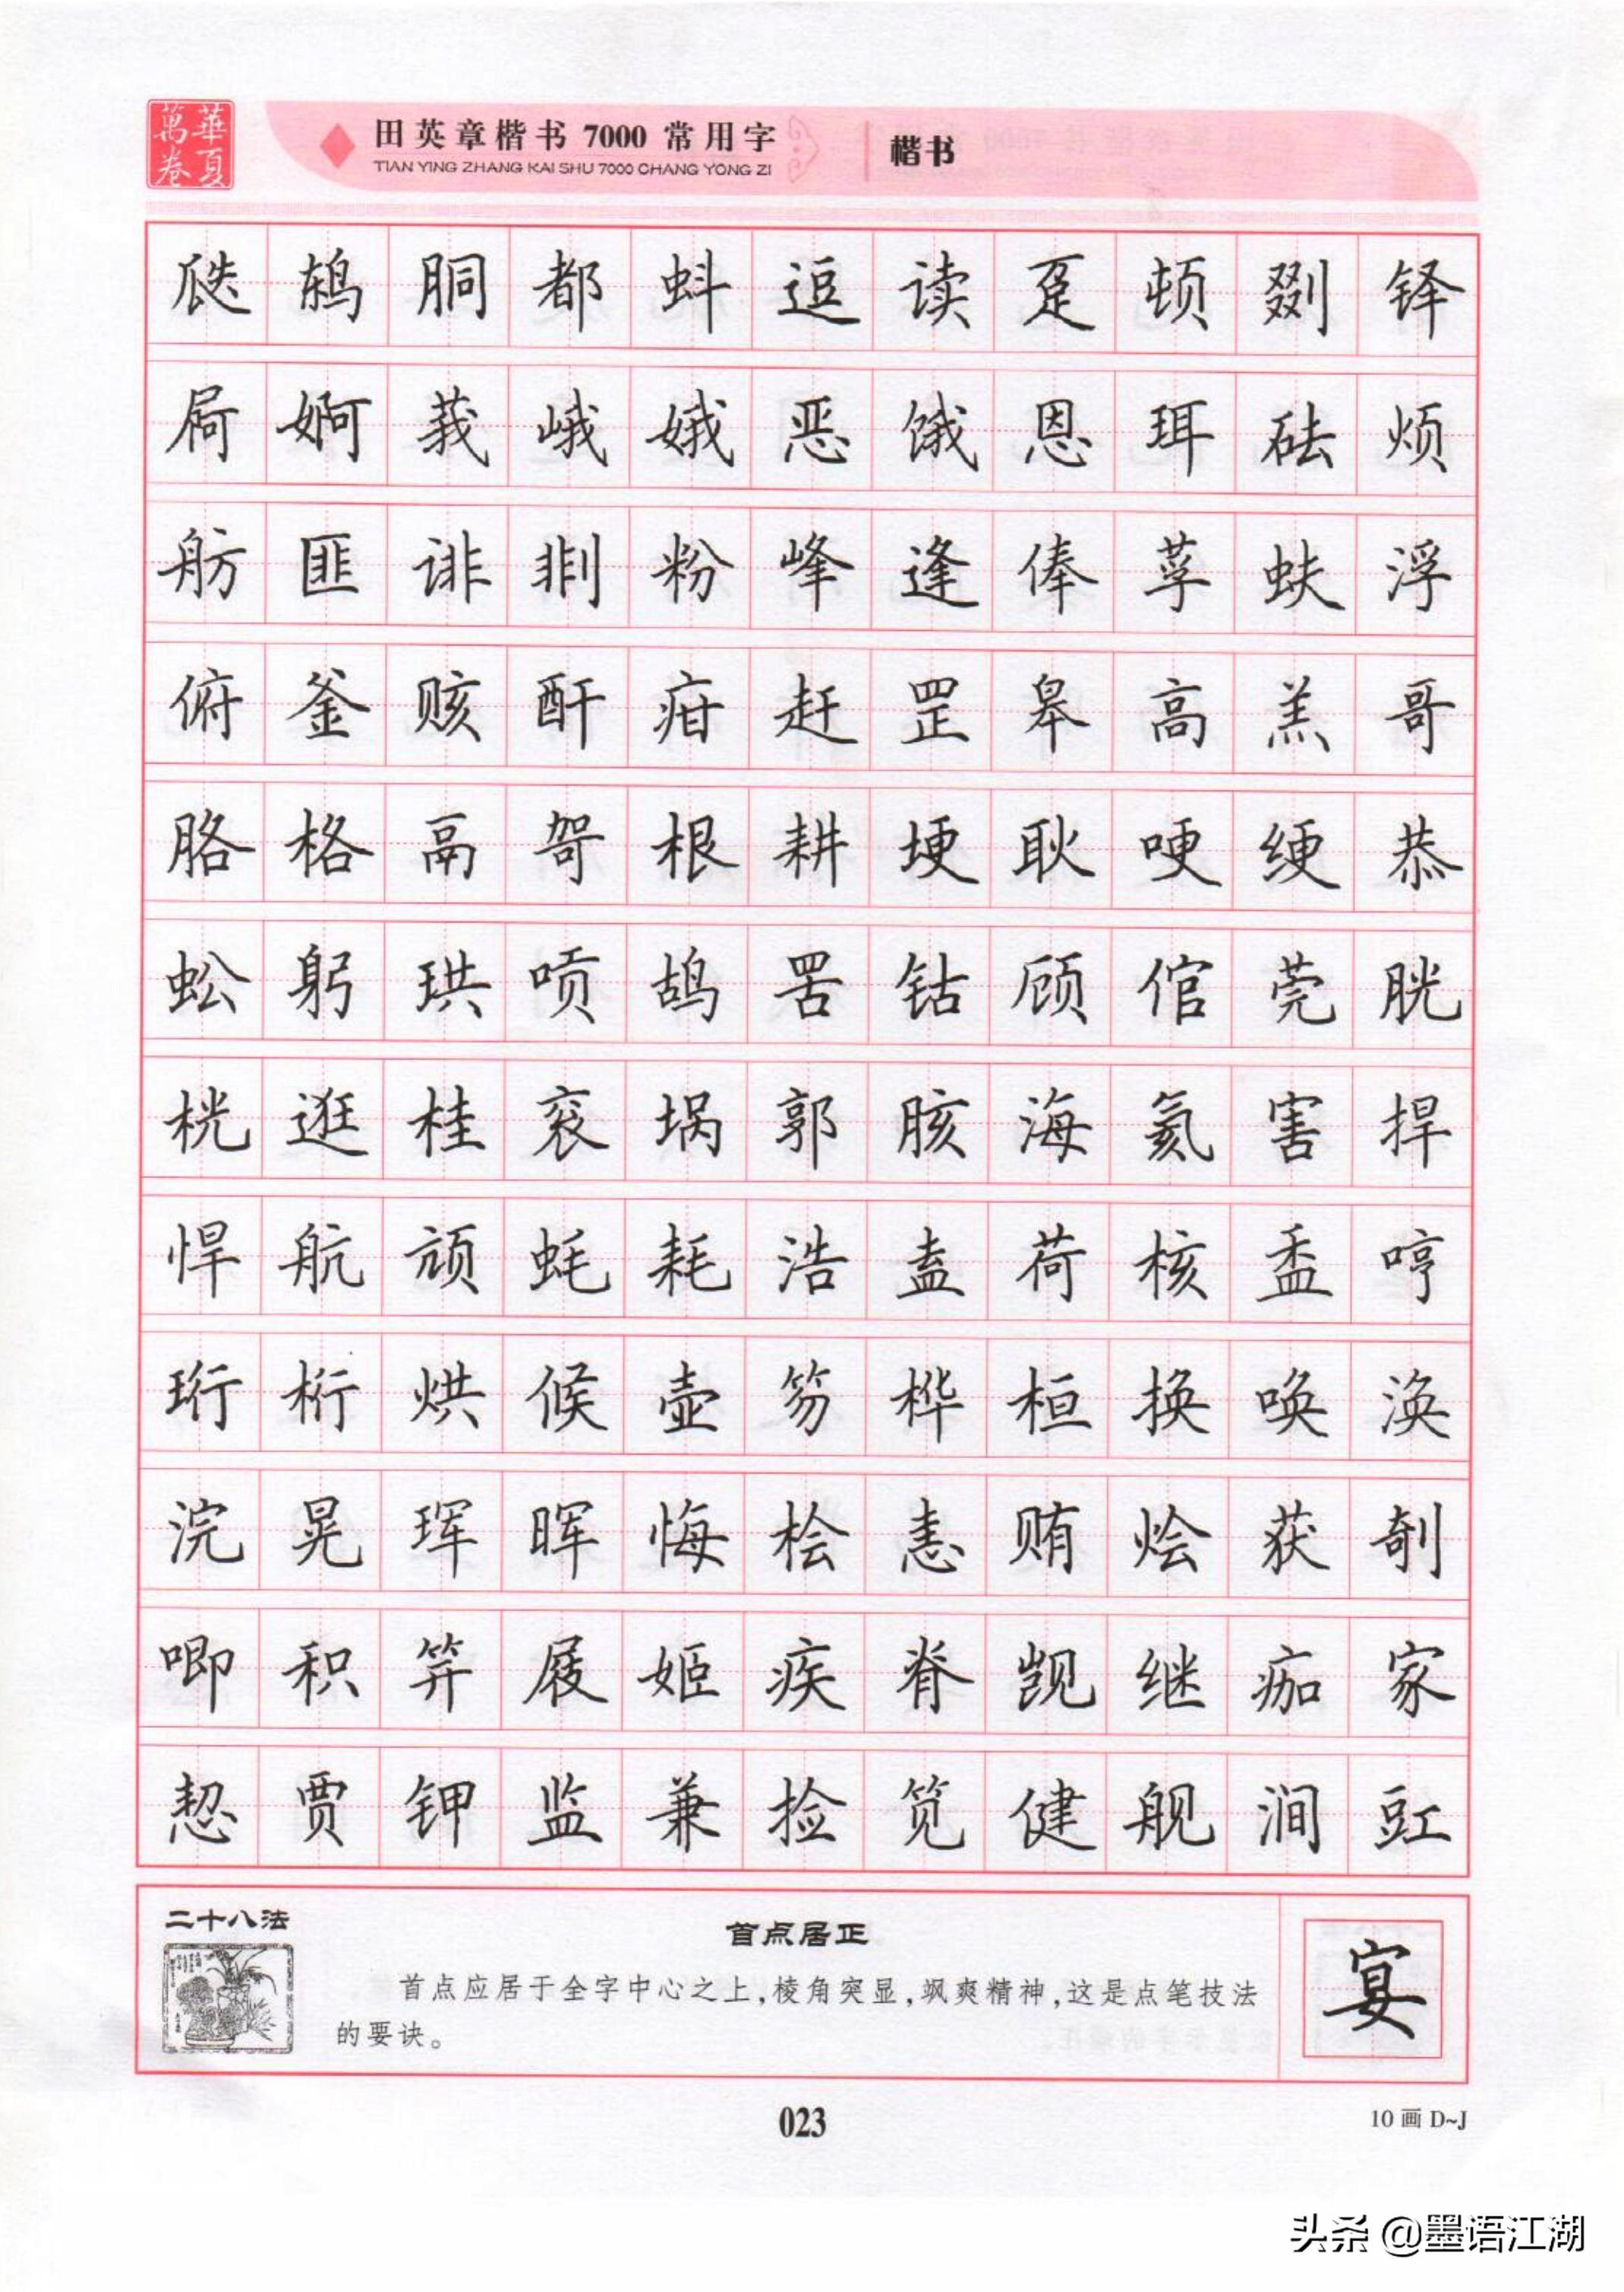 萬華
卷夏
田英章楷书 7000 常用字
TIAN YING ZHANG KAI SHU 7000 CHANG YONG ZI
楷书
瓞 鸫 胴 都 蚪 逗 读 趸 顿 剟 铎
屙 婀 莪 峨 娥 恶 饿 恩 珥 砝 烦
舫 匪 诽 剕 粉 峰 逢 俸 莩 蚨 浮
俯 釜 赅 酐 疳 赶 罡 皋 高 羔 哥
胳 格 鬲 哿 根 耕 埂 耿 哽 绠 恭
蚣 躬 珙 唝 鸪 罟 钴 顾 倌 莞 胱
桄 逛 桂 衮 埚 郭 胲 海 氦 害 捍
悍 航 颃 蚝 耗 浩 盍 荷 核 盉 哼
珩 桁 烘 候 壶 笏 桦 桓 换 唤 涣
浣 晃 珲 晖 悔 桧 恚 贿 烩 获 剞
唧 积 笄 屐 姬 疾 脊 觊 继 痂 家
恝 贾 钾 监 兼 捡 笕 健 舰 涧 豇
二十八法
首点居正
首点应居于全字中心之上,棱角突显,飒爽精神,这是点笔技法
的要诀。
宴
023
10 画 D~J
头条 @墨语江湖